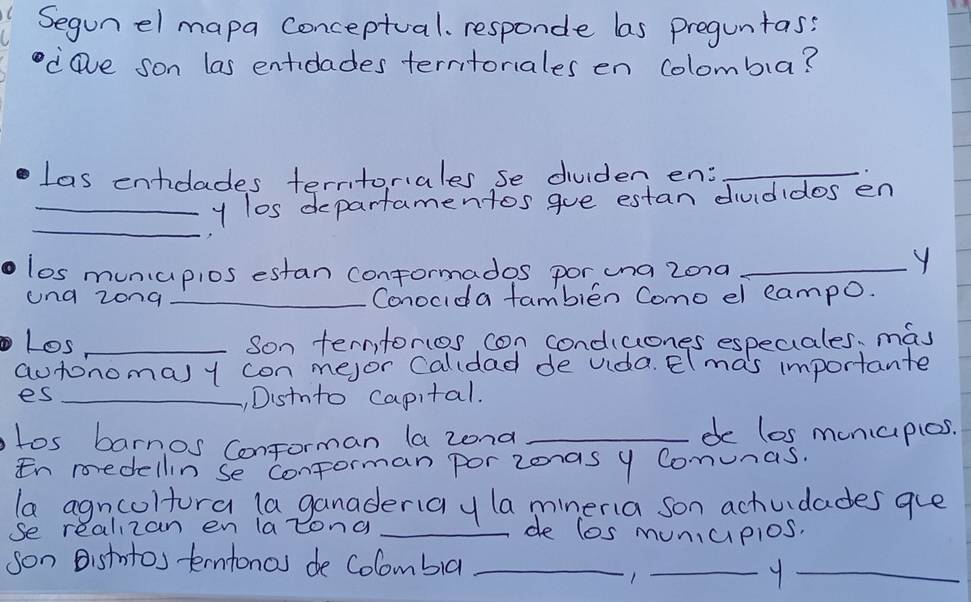 Segun el mapa conceptual. responde las preguntas:
• ¿Que son las entidades territoriales en Colombia?
• Las entidades territoriales se dividen en: ________.
________ y los departamentos que estan divididos en
________.
• los municipios estan conformados por una zona ________ y
una zona ________ Conocida también Como el campo.
• Los ________ son territorios con condiciones especiales. más
autonomas y con mejor Calidad de vida. El más importante
es ________, Distrito Capital.
• Los barrios conforman la zona ________ de los municipios.
En medellin se conforman por zonas y Comunas.
la agricoltura la ganaderia y la mineria son actividades que
se realizan en la zona ________ de los municipios.
son Distritos territorios de Colombia ________, ________ y ________